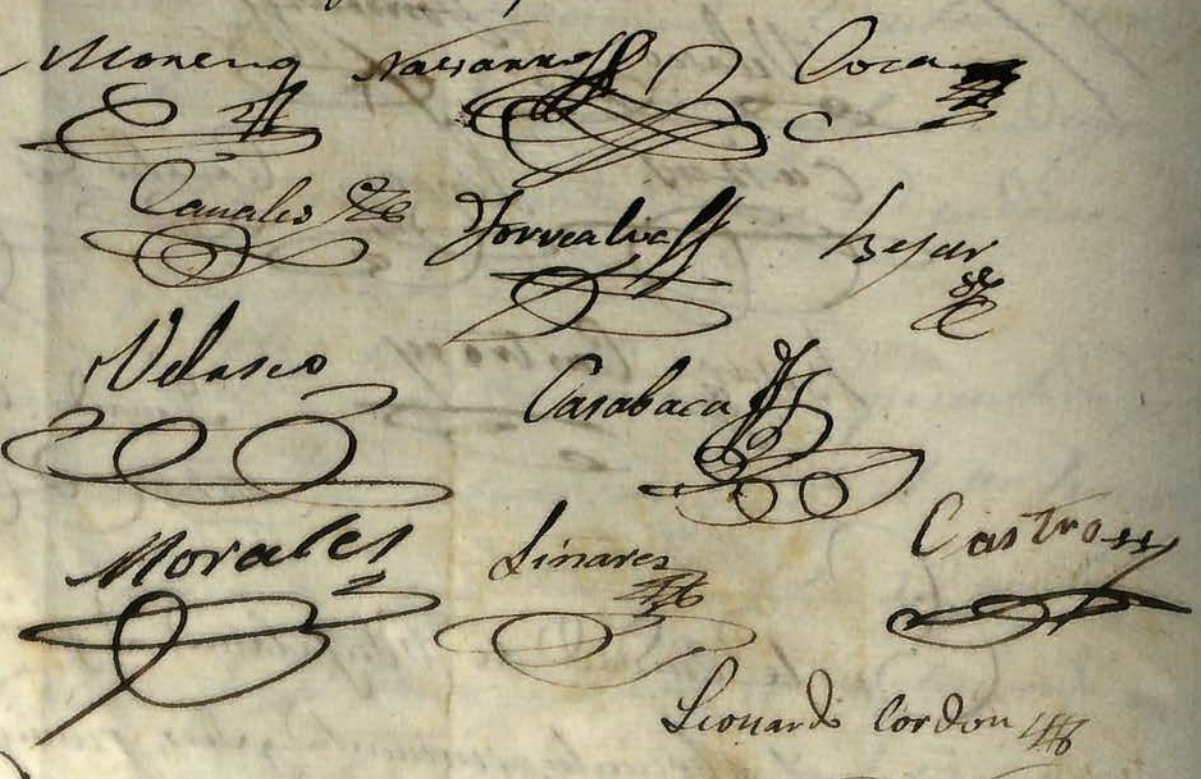 Moreno Navarro Coca
Canales Torrealva Bejar
Velasco Casabaca
Morales Linares Castro
Leonardo Cordon